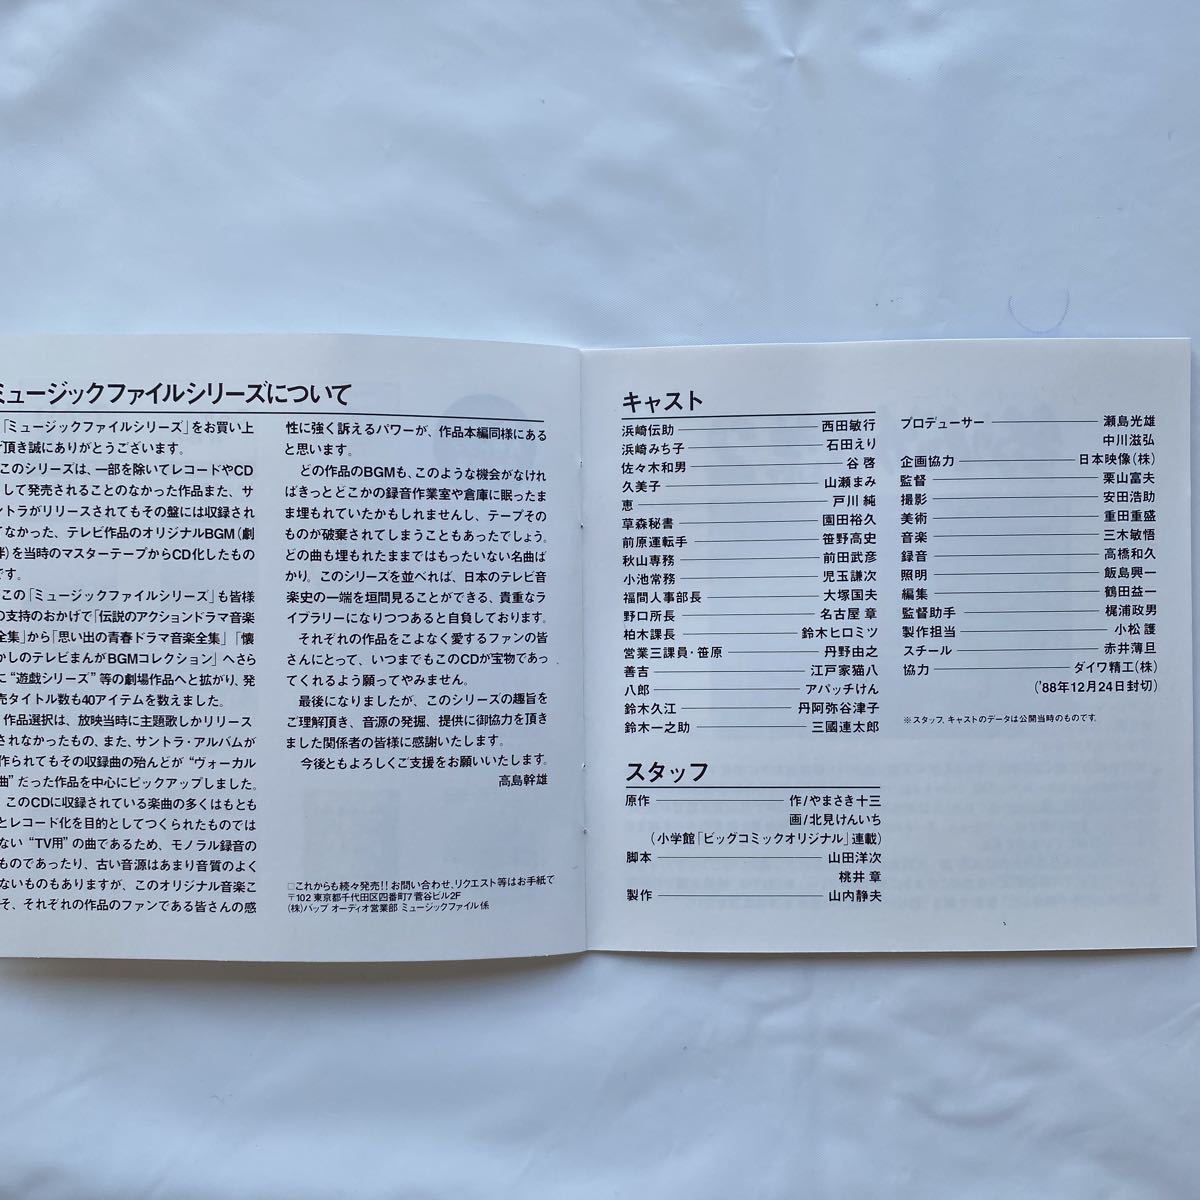 ミュージックファイルシリーズについて
「ミュージックファイルシリーズ」をお買い上
頂き誠にありがとうございます。
このシリーズは、一部を除いてレコードやCD
して発売されることのなかった作品また、サ
ントラがリリースされてもその盤には収録され
てなかった、テレビ作品のオリジナルBGM(劇
伴)を当時のマスターテープからCD化したもの
です。
この「ミュージックファイルシリーズ」も皆様
の支持のおかげで「伝説のアクションドラマ音楽
全集」から「思い出の青春ドラマ音楽全集」「懐
かしのテレビまんがBGMコレクション」へさら
に“遊戯シリーズ”等の劇場作品へと拡がり、発
売タイトル数も40アイテムを数えました。
作品選択は、放映当時に主題歌しかリリース
されなかったもの、また、サントラ・アルバムが
作られてもその収録曲の殆んどが“ヴォーカル
曲”だった作品を中心にピックアップしました。
このCDに収録されている楽曲の多くはもとも
とレコード化を目的としてつくられたものでは
ない“TV用”の曲であるため、モノラル録音の
ものであったり、古い音源はあまり音質のよく
ないものもありますが、このオリジナル音楽こ
そ、それぞれの作品のファンである皆さんの感
性に強く訴えるパワーが、作品本編同様にある
と思います。
どの作品のBGMも、このような機会がなけれ
ばきっとどこかの録音作業室や倉庫に眠ったま
ま埋もれていたかもしれませんし、テープその
ものが破棄されてしまうこともあったでしょう。
どの曲も埋もれたままではもったいない名曲ば
かり。このシリーズを並べれば、日本のテレビ音
楽史の一端を垣間見ることができる、貴重なラ
イブラリーになりつつあると自負しております。
それぞれの作品をこよなく愛するファンの皆
さんにとって、いつまでもこのCDが宝物であっ
てくれるよう願ってやみません。
最後になりましたが、このシリーズの趣旨を
ご理解頂き、音源の発掘、提供に御協力を頂き
ました関係者の皆様に感謝いたします。
今後ともよろしくご支援をお願いいたします。
高島幹雄
□これからも続々発売!! お問い合わせ、リクエスト等はお手紙で
〒102 東京都千代田区四番町7 菅谷ビル2F
(株)バップ オーディオ営業部 ミュージックファイル係
キャスト
浜崎伝助 西田敏行
浜崎みち子 石田えり
佐々木和男 谷 啓
久美子 山瀬まみ
恵 戸川 純
草森秘書 園田裕久
前原運転手 笹野高史
秋山専務 前田武彦
小池常務 児玉謙次
福間人事部長 大塚国夫
野口所長 名古屋 章
柏木課長 鈴木ヒロミツ
営業三課員・笹原 丹野由之
善吉 江戸家猫八
八郎 アパッチけん
鈴木久江 丹阿弥谷津子
鈴木一之助 三國連太郎
スタッフ
原作 作/やまさき十三
画/北見けんいち
(小学館「ビッグコミックオリジナル」連載)
脚本 山田洋次
桃井 章
製作 山内静夫
プロデューサー 瀬島光雄
中川滋弘
企画協力 日本映像(株)
監督 栗山富夫
撮影 安田浩助
美術 重田重盛
音楽 三木敏悟
録音 高橋和久
照明 飯島興一
編集 鶴田益一
監督助手 梶浦政男
製作担当 小松 護
スチール 赤井薄旦
協力 ダイワ精工(株)
('88年12月24日封切)
※スタッフ、キャストのデータは公開当時のものです。